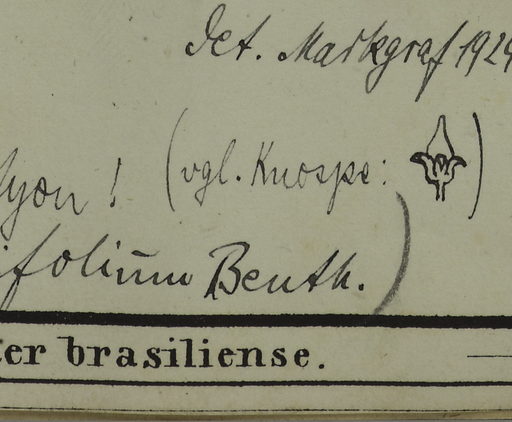 det. Markgraf 1929
lyon! (vgl. Knospe: )
ifolium Benth.)
ter brasiliense.